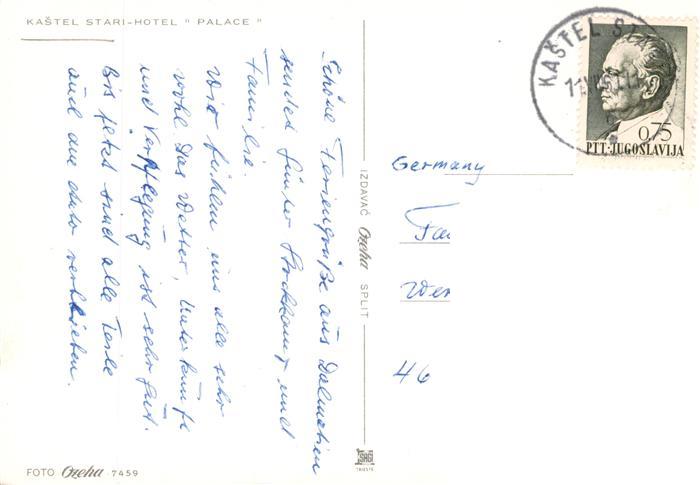 KAŠTEL STARI-HOTEL " PALACE "
Schöne Feriengrüße aus Dalmatien
sendet Günter Stockamp und
Familie.
Wir fühlen uns alle sehr
wohl. Das Wetter, Unterkunft
und Verpflegung ist sehr gut.
Bis jetzt sind alle Teile
und am Auto verblieben.
IZDAVAČ Ozeha SPLIT
KAŠTEL
0,75
PTT·JUGOSLAVIJA
Germany
Fa
Wer
46
FOTO Ozeha · 7459